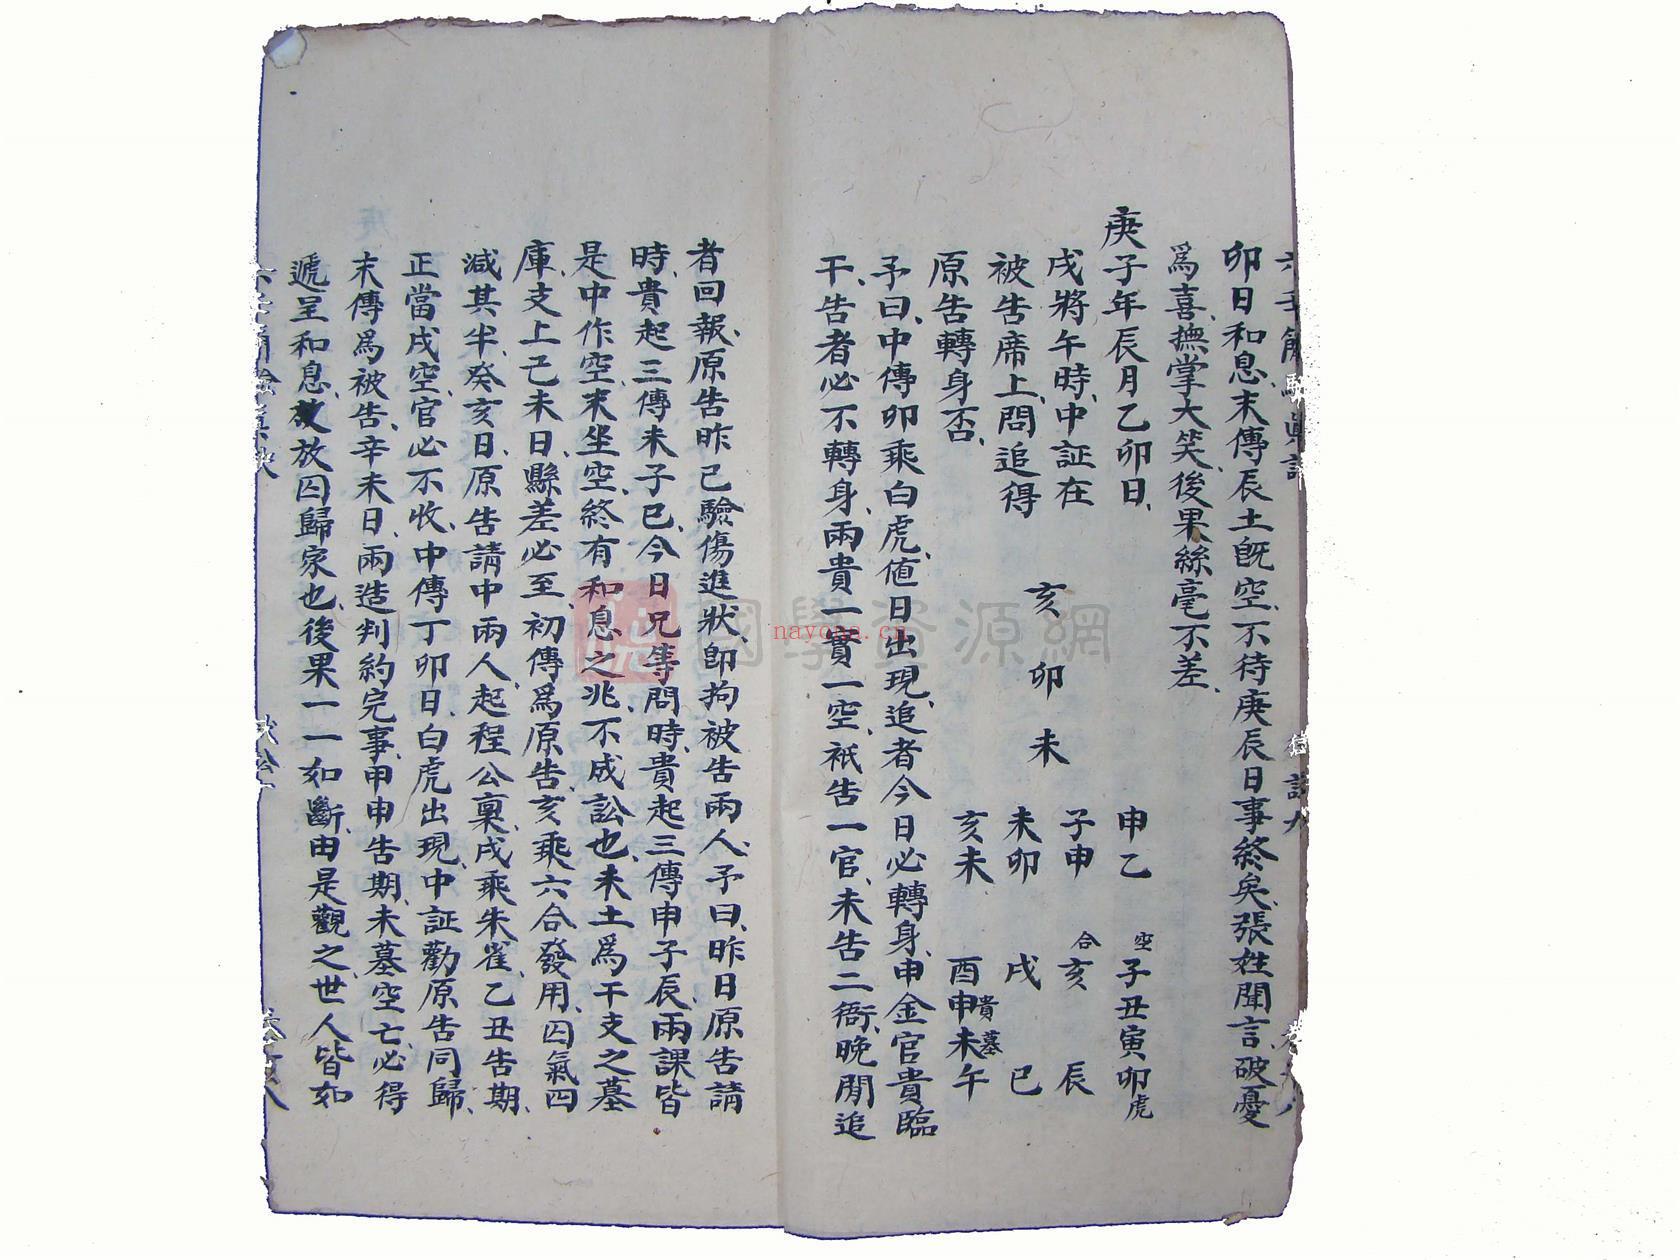 卯日和息、末傳辰土既空、不待庚辰日事終矣、張姓聞言、破憂
為喜、撫掌大笑、後果絲毫不差、
庚子年辰月乙卯日、
戌將午時、中証在
被告席上、問追得
原告轉身否、
亥 卯 未
申乙
子申
未卯
亥未
空子丑寅卯虎
合亥 辰
戌 巳
酉申貴未墓午
予曰、中傳卯乘白虎、值日出現、追者今日必轉身、申金官貴臨
干、告者必不轉身、兩貴一實一空、祇告一官、未告二衙、晚間追
者回報、原告昨已驗傷進狀、即拘被告兩人、予曰、昨日原告請
時、貴起三傳未子巳、今日兄等問時、貴起三傳申子辰、兩課皆
是中作空、末坐空、終有和息之兆、不成訟也、未土為干支之墓
庫、支上己未日、縣差必至、初傳為原告、亥乘六合發用、囚氣四
減其半、癸亥日、原告請中兩人、起程公稟、戌乘朱雀、乙丑告期、
正當戌空、官必不收、中傳丁卯日、白虎出現、中証勸原告同歸、
末傳為被告、辛未日、兩造判約完事、甲申告期、未墓空亡、必得
遞呈和息、放囚歸家也、後果一一如斷、由是觀之、世人皆如
國學資源網
nayona.cn